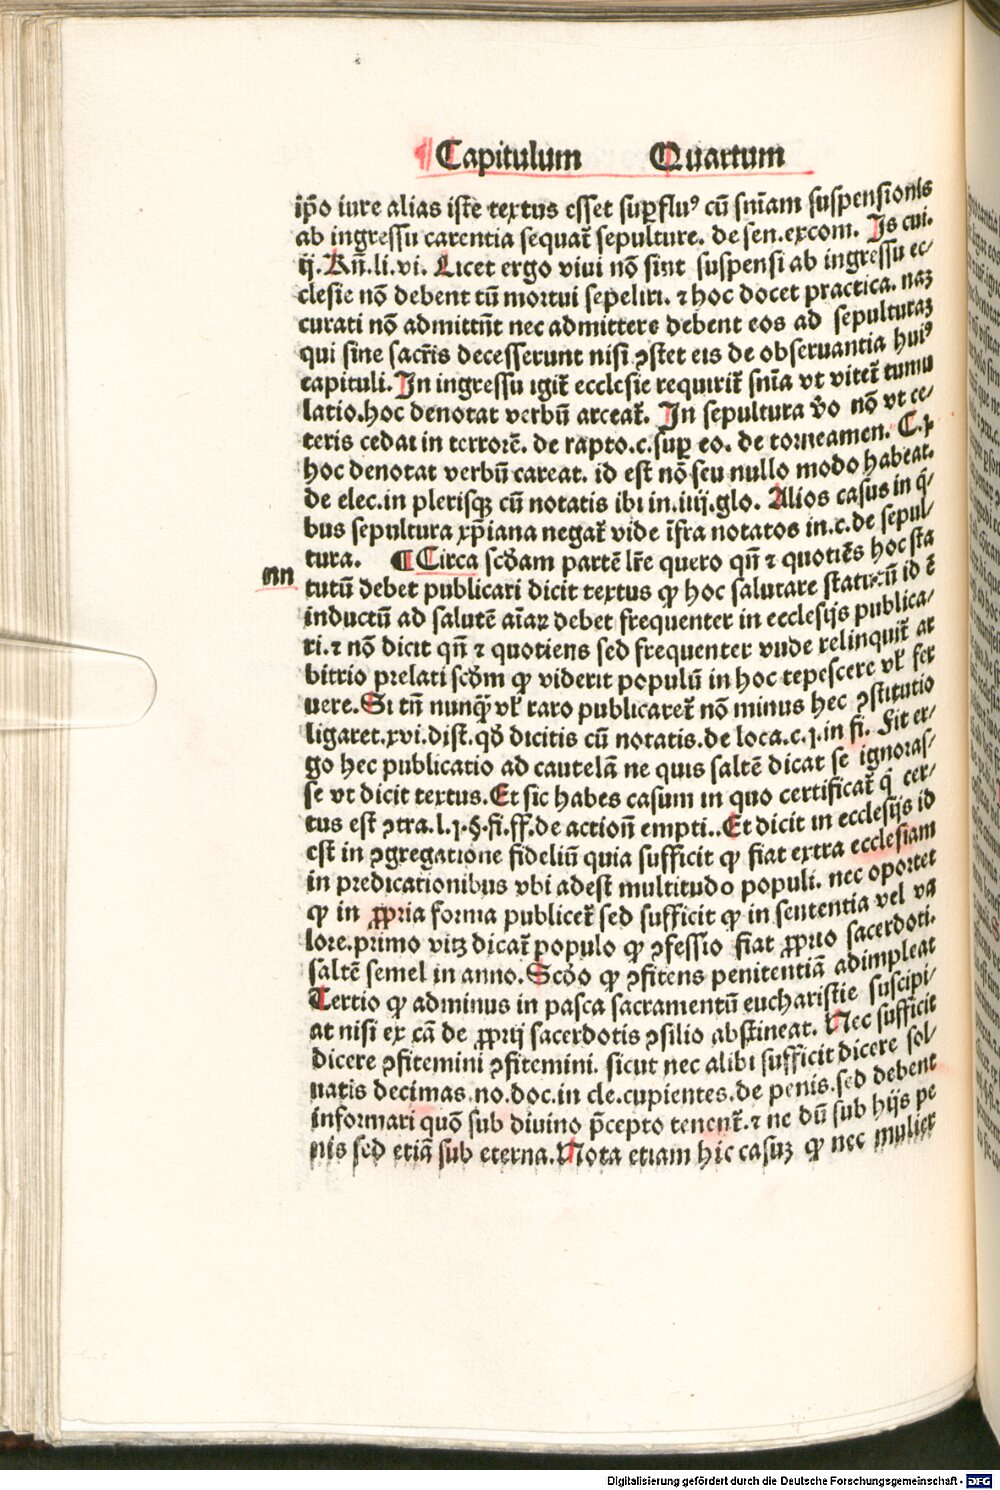 ¶ Capitulum Quartum
ip̄o iure alias iste textus esset suꝑfluꝰ cū sn̄iam suspensionis
ab ingressu carentia sequat᷑ sepulture. de sen.excom. Is cui.
ij. Rn̄.li.vi. Licet ergo viui nō sint suspensi ab ingressu ec⸗
clesie nō debent tn̄ mortui sepeliri. ⁊ hoc docet practica. naꝫ
curati nō admittūt nec admittere debent eos ad sepulturaꝫ
qui sine sacr̄is decesserunt nisi ꝯstet eis de obseruantia huiꝰ
capituli. In ingressu igit᷑ ecclesie requirit᷑ sn̄ia vt vitet᷑ tumu
latio.hoc denotat verbū arceat᷑. In sepultura v̄o nō vt ce⸗
teris cedat in terrorē. de rapto.c.suꝑ eo. de torneamen. C.j.
hoc denotat verbū careat. id est nō seu nullo modo habeat.
de elec.in plerisqꝫ cū notatis ibi in.iiij.glo. Alios casus in q̄⸗
bus sepultura xp̄iana negat᷑ vide īfra notatos in.c.de sepul⸗
tura. ¶ Circa scd̄am partē lr̄e quero qn̄ ⁊ quotiēs hoc sta
nn
tutū debet publicari dicit textus ꝙ hoc salutare statutū id ē
inductū ad salutē aīaꝝ debet frequenter in ecclesijs publica⸗
ri.⁊ nō dicit qn̄ ⁊ quotiens sed frequenter vnde relinquit᷑ ar
bitrio prelati scd̄m ꝙ viderit populū in hoc tepescere vl᷑ fer
uere. Si tn̄ nunq̄ꝫ vl᷑ raro publicaret᷑ nō minus hec ꝯstitutio
ligaret.xvi.dist.qd̄ dicitis cū notatis.de loca.c.j.in fi. Fit er⸗
go hec publicatio ad cautelā ne quis saltē dicat se ignoras⸗
se vt dicit textus. Et sic habes casum in quo certificat᷑ q̄ cer⸗
tus est ꝯtra.l.j.§.fi.ff.de actioñ empti.. Et dicit in ecclesijs id
est in ꝯgregatione fideliū quia sufficit ꝙ fiat extra ecclesiam
in predicationibus vbi adest multitudo populi. nec oportet
ꝙ in ꝓpria forma publicet᷑ sed sufficit ꝙ in sententia vel va
lore.primo vitꝫ dicat᷑ populo ꝙ ꝯfessio fiat ꝓprio sacerdoti.
saltē semel in anno. Scd̄o ꝙ ꝯfitens penitentiā adimpleat
Tertio ꝙ adminus in pasca sacramentū eucharistie suscipi⸗
at nisi ex cā de ꝓprij sacerdotis ꝯsilio abstineat. Nec sufficit
dicere ꝯfitemini ꝯfitemini. sicut nec alibi sufficit dicere sol⸗
uatis decimas.no.doc.in cle.cupientes.de penis.sed debent
informari quō sub diuino p̄cepto tenent᷑.⁊ ne dū sub hijs pe
nis sed etiā sub eterna. Nota etiam hic casuꝫ ꝙ nec mulier
Digitalisierung gefördert durch die Deutsche Forschungsgemeinschaft - DFG